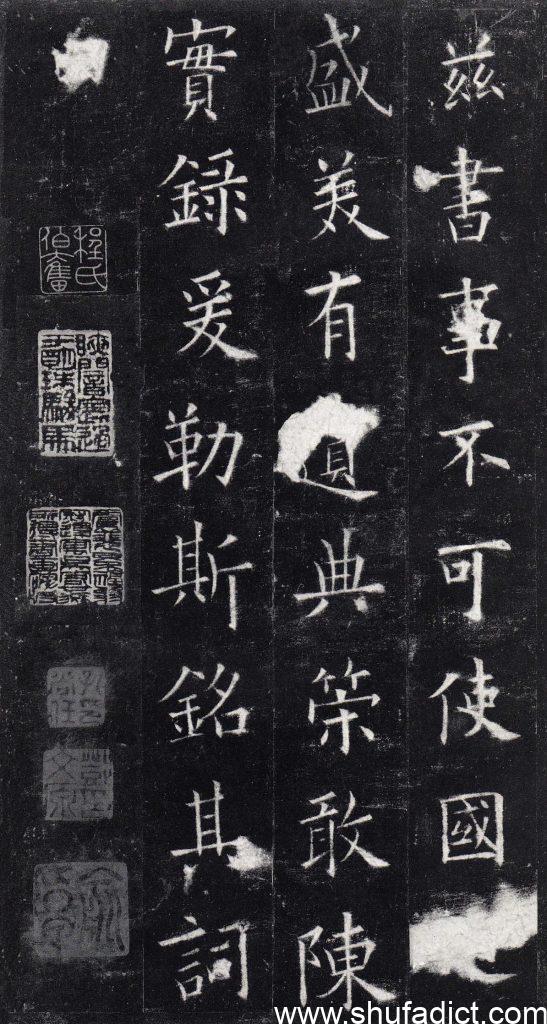 兹書事不可使國
盛美有遺典策敢陳
實錄爰勒斯銘其詞
程氏
伯奮
www.shufadict.com